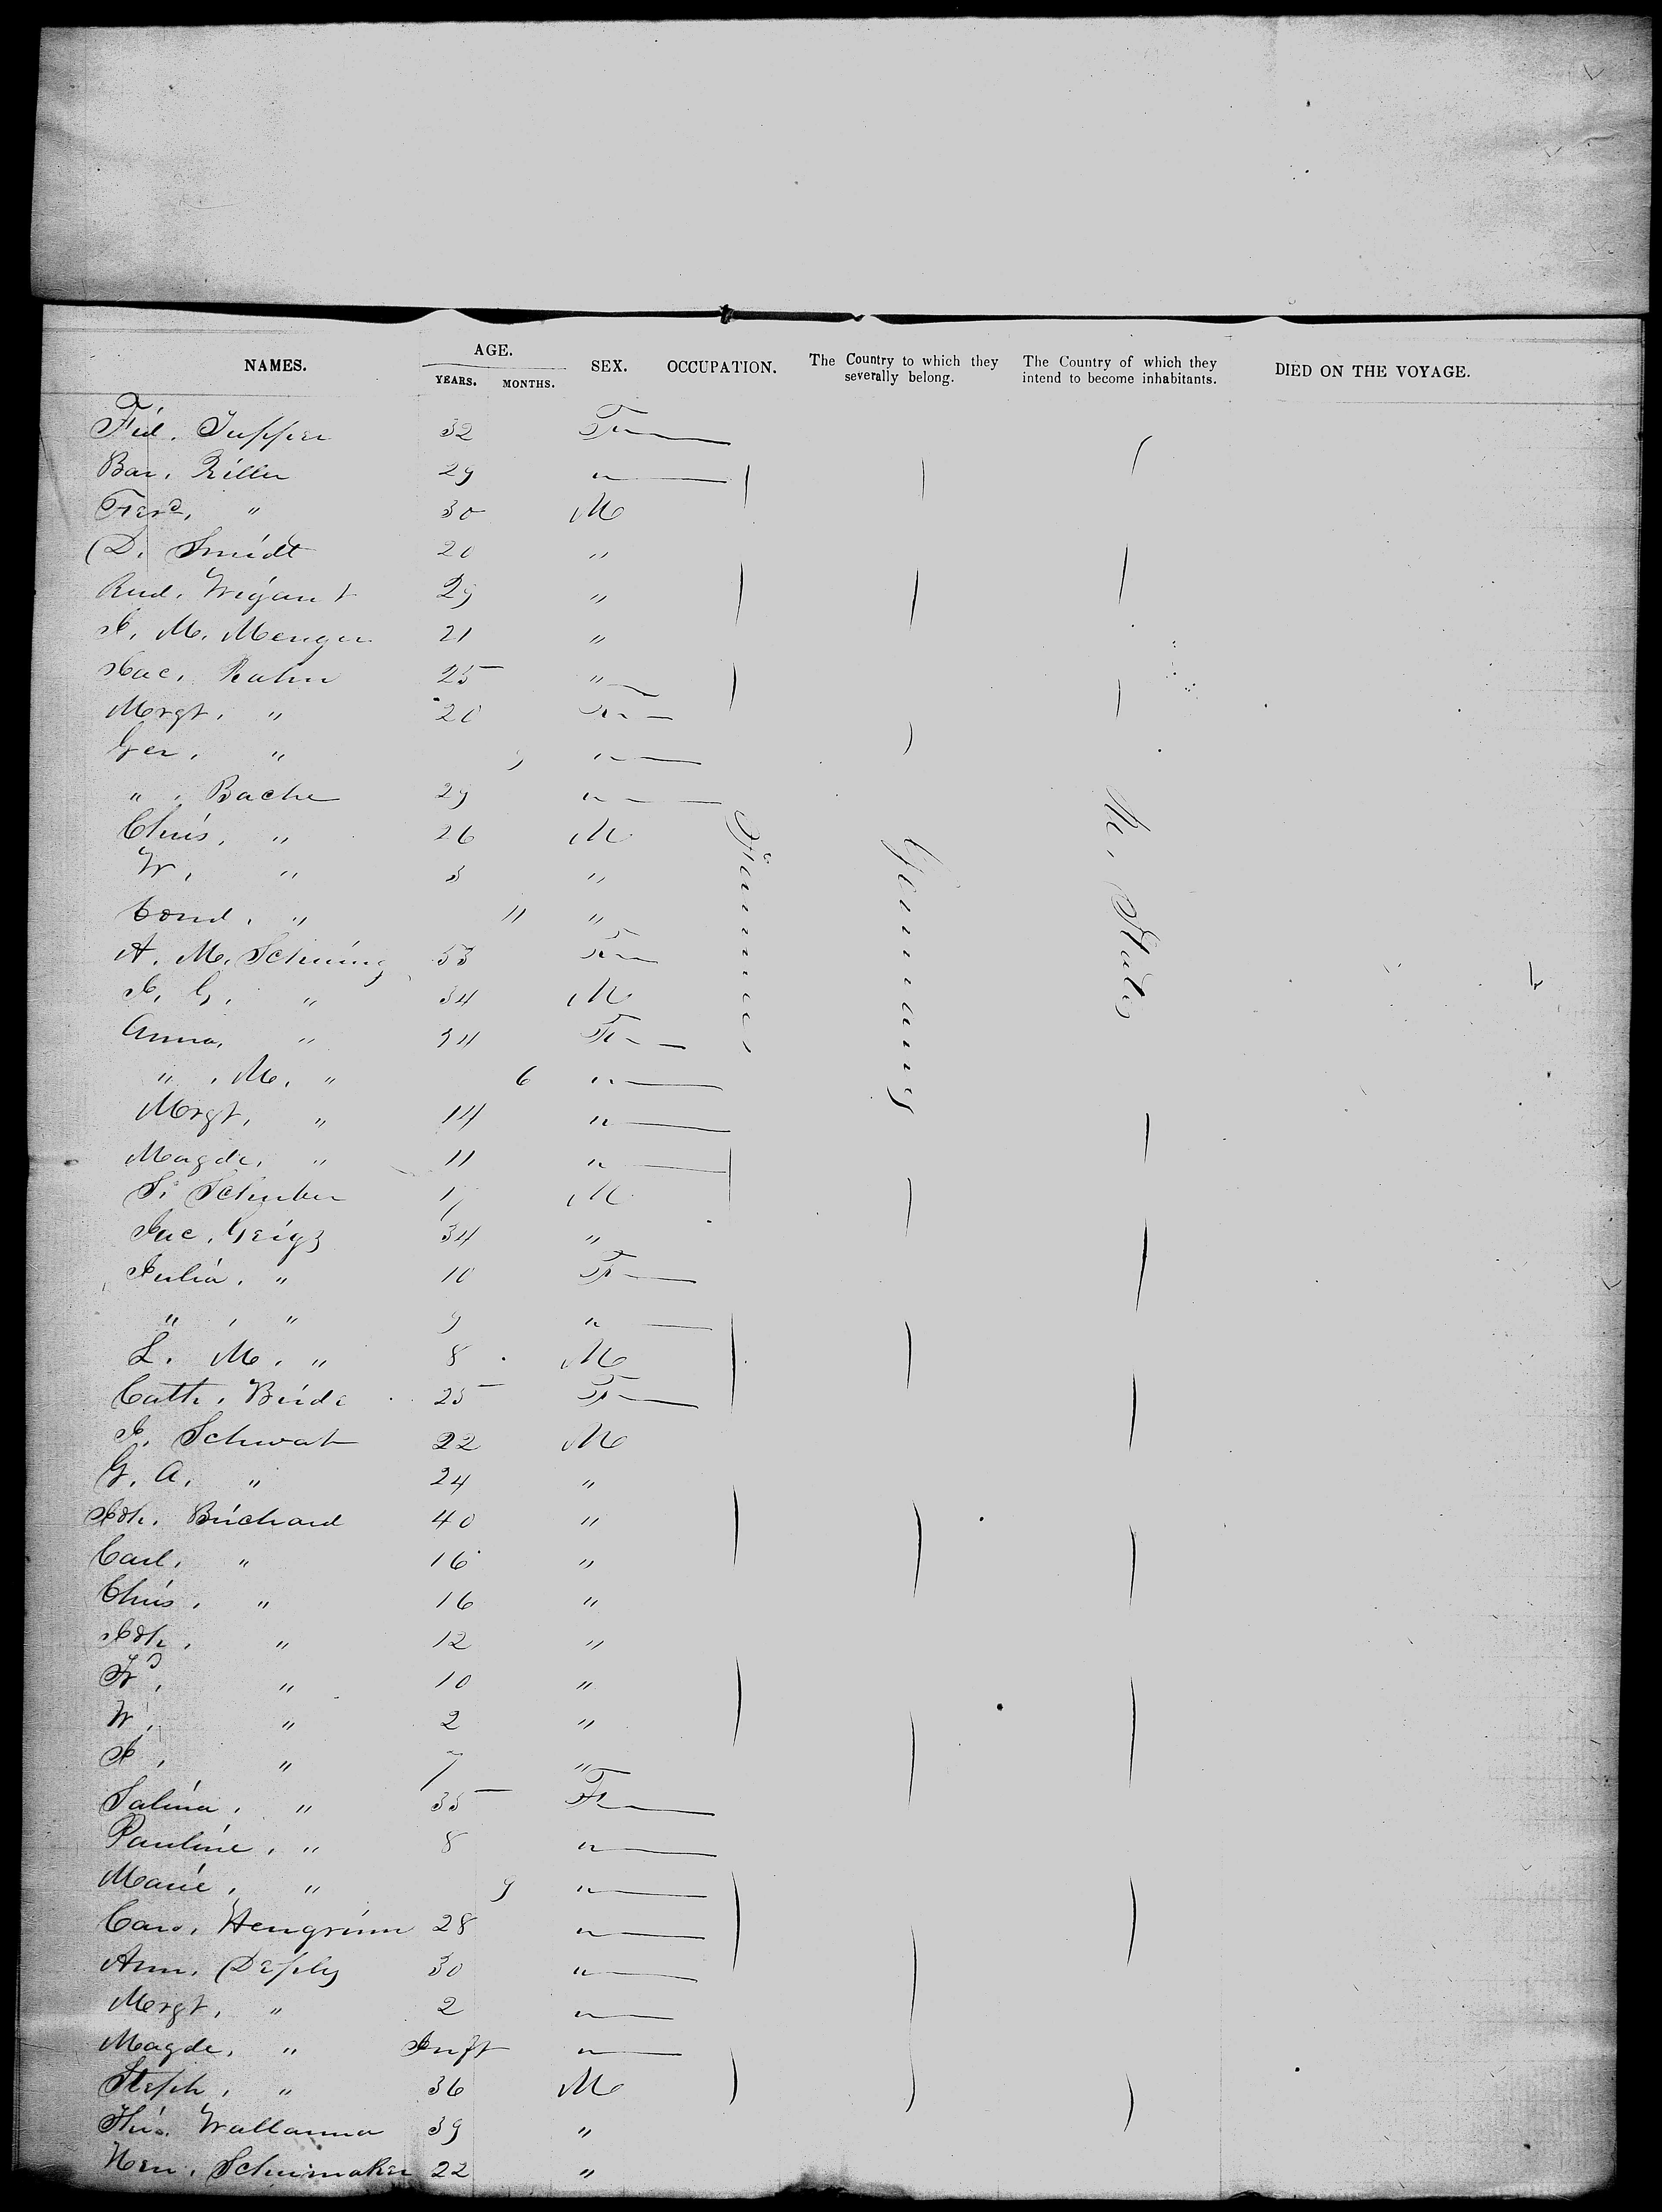 NAMES. AGE. YEARS. MONTHS. SEX. OCCUPATION. The Country to which they severally belong. The Country of which they intend to become inhabitants. DIED ON THE VOYAGE.
Fid. Jupper 32 Fe
Bar. Riller 29 "
Ferd. " 30 M
D. Smidt 20 "
Rud. Wigant 29 "
J. M. Menger 21 "
Jac. Rahn 25 "
Mrgt. " 20 Fe
Ger. " 9 "
" . Bache 29 "
Chris. " 26 M
W. " 3 "
Cond. " 11 "
A. M. Schuing 53 Fe
J. G. " 34 M
Anna. " 34 Fe
" . M. " 6 "
Mrgt. " 14 "
Magde. " 11 "
S. Schuber 17 M
Jac. Geigz 34 "
Julia. " 10 Fe
" . " 9 "
L. M. " 8 M
Cath. Birde 25 Fe
J. Schwab 22 M
G. A. " 24 "
Joh. Birchard 40 "
Carl. " 16 "
Chris. " 16 "
Joh. " 12 "
Fd. " 10 "
W. " 2 "
J. " 7 "
Salina. " 35 Fe
Pauline. " 8 "
Marie. " 9 "
Caro. Hengrinn 28 "
Ann. Deply 30 "
Mrgt. " 2 "
Magde. " Inft "
Steph. " 36 M
Wallanna 39 "
Hen. Schumaker 22 "
Farmer
Germany
U. States